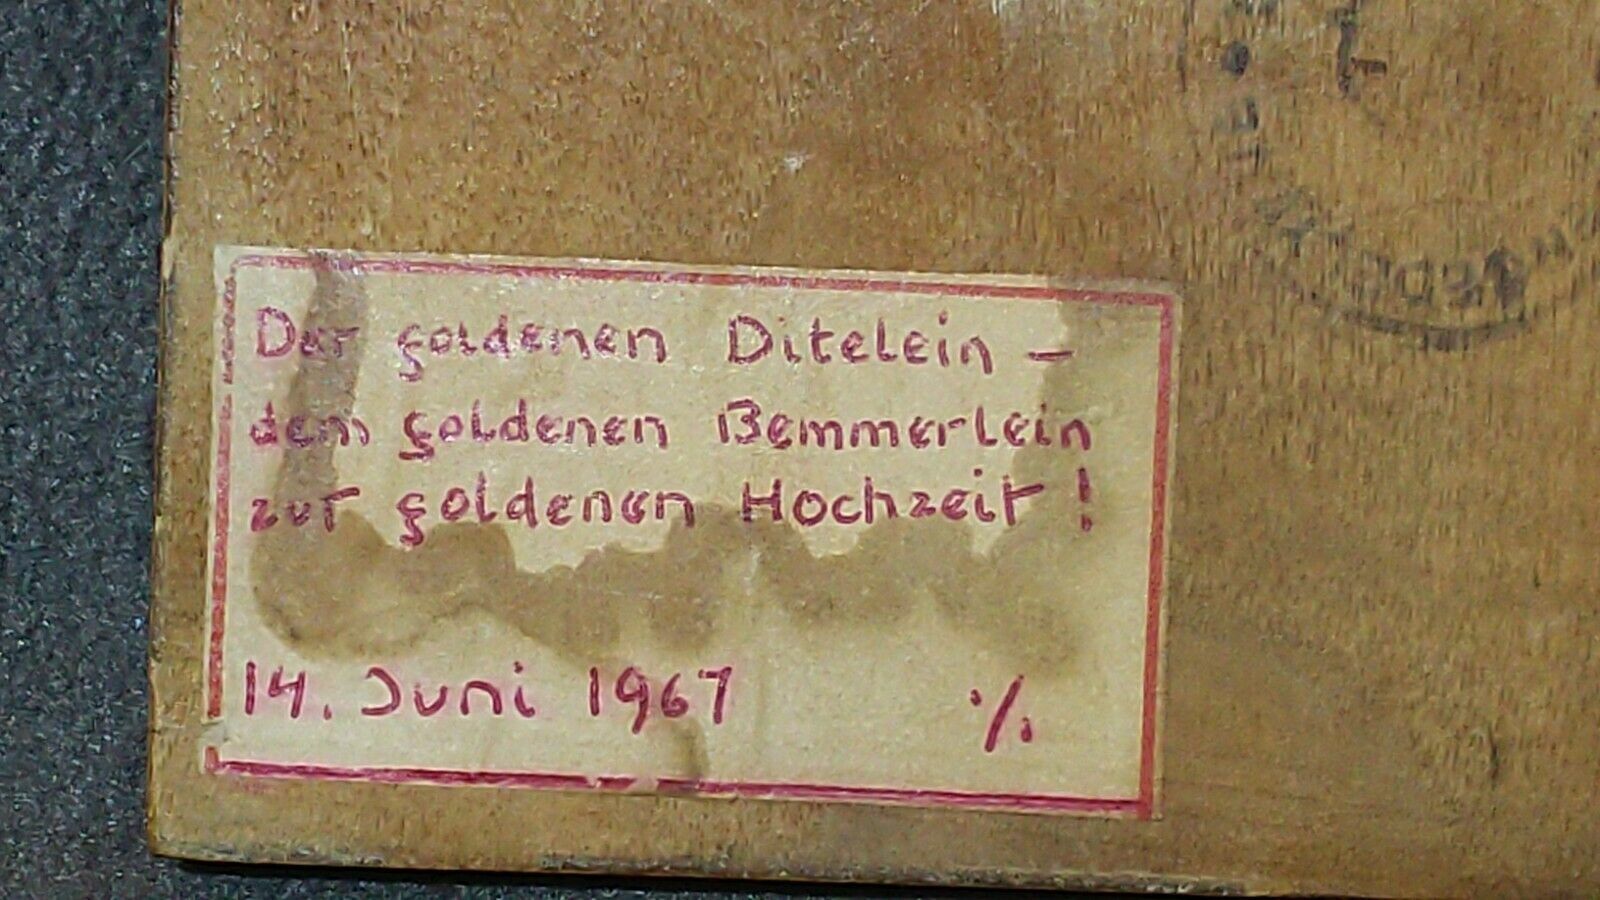 Der goldenen Ditelein –
dem goldenen Bemmerlein
zur goldenen Hochzeit !
14. Juni 1967 ·/.